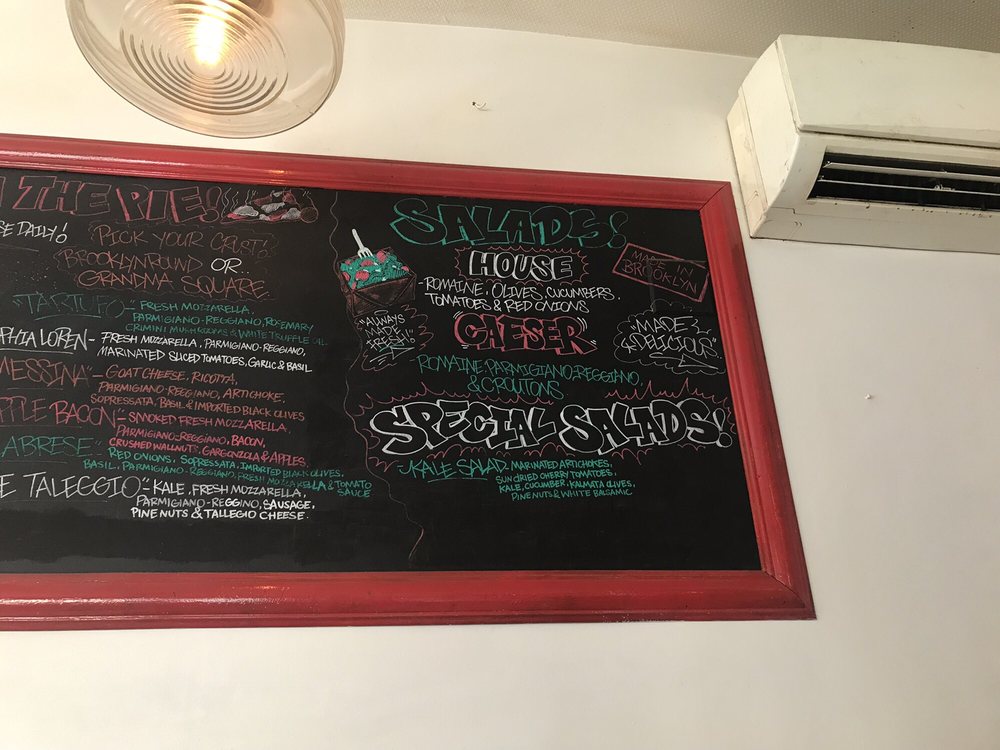 THE PIE!
DAILY!
PICK YOUR CRUST!
BROOKLYN ROUND OR...
GRANDMA SQUARE.
TARTUFO - FRESH MOZZARELLA,
PARMIGIANO-REGGIANO, ROSEMARY
CRIMINI MUSHROOMS & WHITE TRUFFLE OIL.
PHIA LOREN - FRESH MOZZARELLA, PARMIGIANO-REGGIANO,
MARINATED SLICED TOMATOES, GARLIC & BASIL
MESSINA" - GOAT CHEESE, RICOTTA,
PARMIGIANO-REGGIANO, ARTICHOKE,
SOPRESSATA, BASIL & IMPORTED BLACK OLIVES
PPLE BACON" - SMOKED FRESH MOZZARELLA,
PARMIGIANO-REGGIANO, BACON,
CRUSHED WALNUTS, GARGONZOLA & APPLES.
ABRESE - RED ONIONS, SOPRESSATA, IMPORTED BLACK OLIVES,
BASIL, PARMIGIANO-REGGIANO, FRESH MOZZARELLA & TOMATO
SAUCE
E TALEGGIO" - KALE, FRESH MOZZARELLA,
PARMIGIANO-REGGINO, SAUSAGE,
PINE NUTS & TALLEGIO CHEESE.
SALADS!
HOUSE
- ROMAINE, OLIVES, CUCUMBERS,
TOMATOES & RED ONIONS
CAESER
ROMAINE, PARMIGIANO-REGGIANO,
& CROUTONS
"ALWAYS
MADE
FRESH!"
MADE IN
BROOKLYN
"MADE
DELICIOUS"...
SPECIAL SALADS!
KALE SALAD - MARINATED ARTICHOKES,
SUN DRIED CHERRY TOMATOES,
KALE, CUCUMBER, KALMATA OLIVES,
PINE NUTS & WHITE BALSAMIC